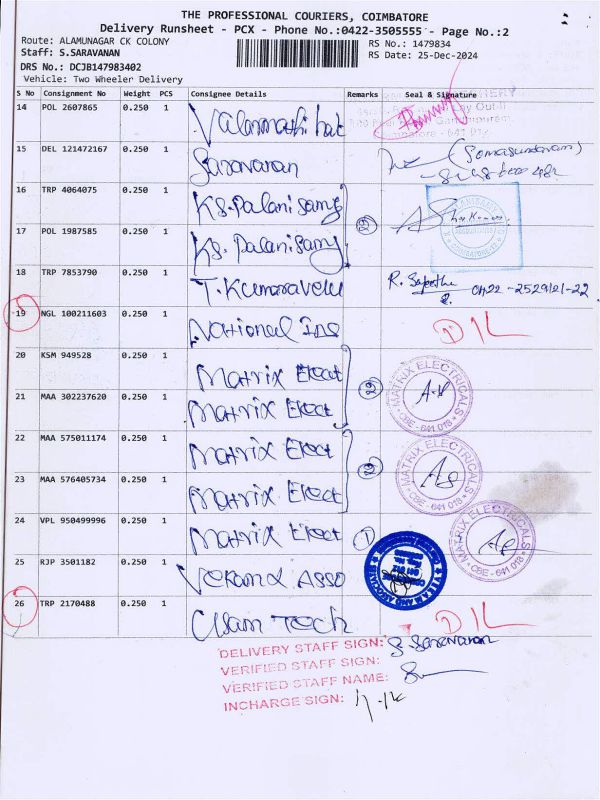 THE PROFESSIONAL COURIERS, COIMBATORE
Delivery Runsheet - PCX - Phone No.:0422-3505555 - Page No.:2
Route: ALAMUNAGAR CK COLONY RS No.: 1479834
Staff: S.SARAVANAN RS Date: 25-Dec-2024
DRS No.: DCJB147983402
Vehicle: Two Wheeler Delivery
S No Consignment No Weight PCS Consignee Details Remarks Seal & Signature
14 POL 2607865 0.250 1
15 DEL 121472167 0.250 1 Saravanan (Somasundaram)
16 TRP 4064075 0.250 1 KS.Palanisamy
17 POL 1987585 0.250 1 KS.Palanisamy
18 TRP 7853790 0.250 1 T.Kumaravelu 0422-2529121-22
19 NGL 100211603 0.250 1 National Ins D/L
20 KSM 949528 0.250 1 Matrix Elect 2
21 MAA 302237620 0.250 1 Matrix Elect MATRIX ELECTRICALS * CBE - 641 018 *
22 MAA 575011174 0.250 1 Matrix Elect 2
23 MAA 576405734 0.250 1 Matrix Elect MATRIX ELECTRICALS * CBE - 641 018 *
24 VPL 950499996 0.250 1 Matrix Elect 1 MATRIX ELECTRICALS * CBE - 641 018 *
25 RJP 3501182 0.250 1 Asso
26 TRP 2170488 0.250 1 Tech D/L
DELIVERY STAFF SIGN: S.Saravanan
VERIFIED STAFF SIGN:
VERIFIED STAFF NAME:
INCHARGE SIGN: